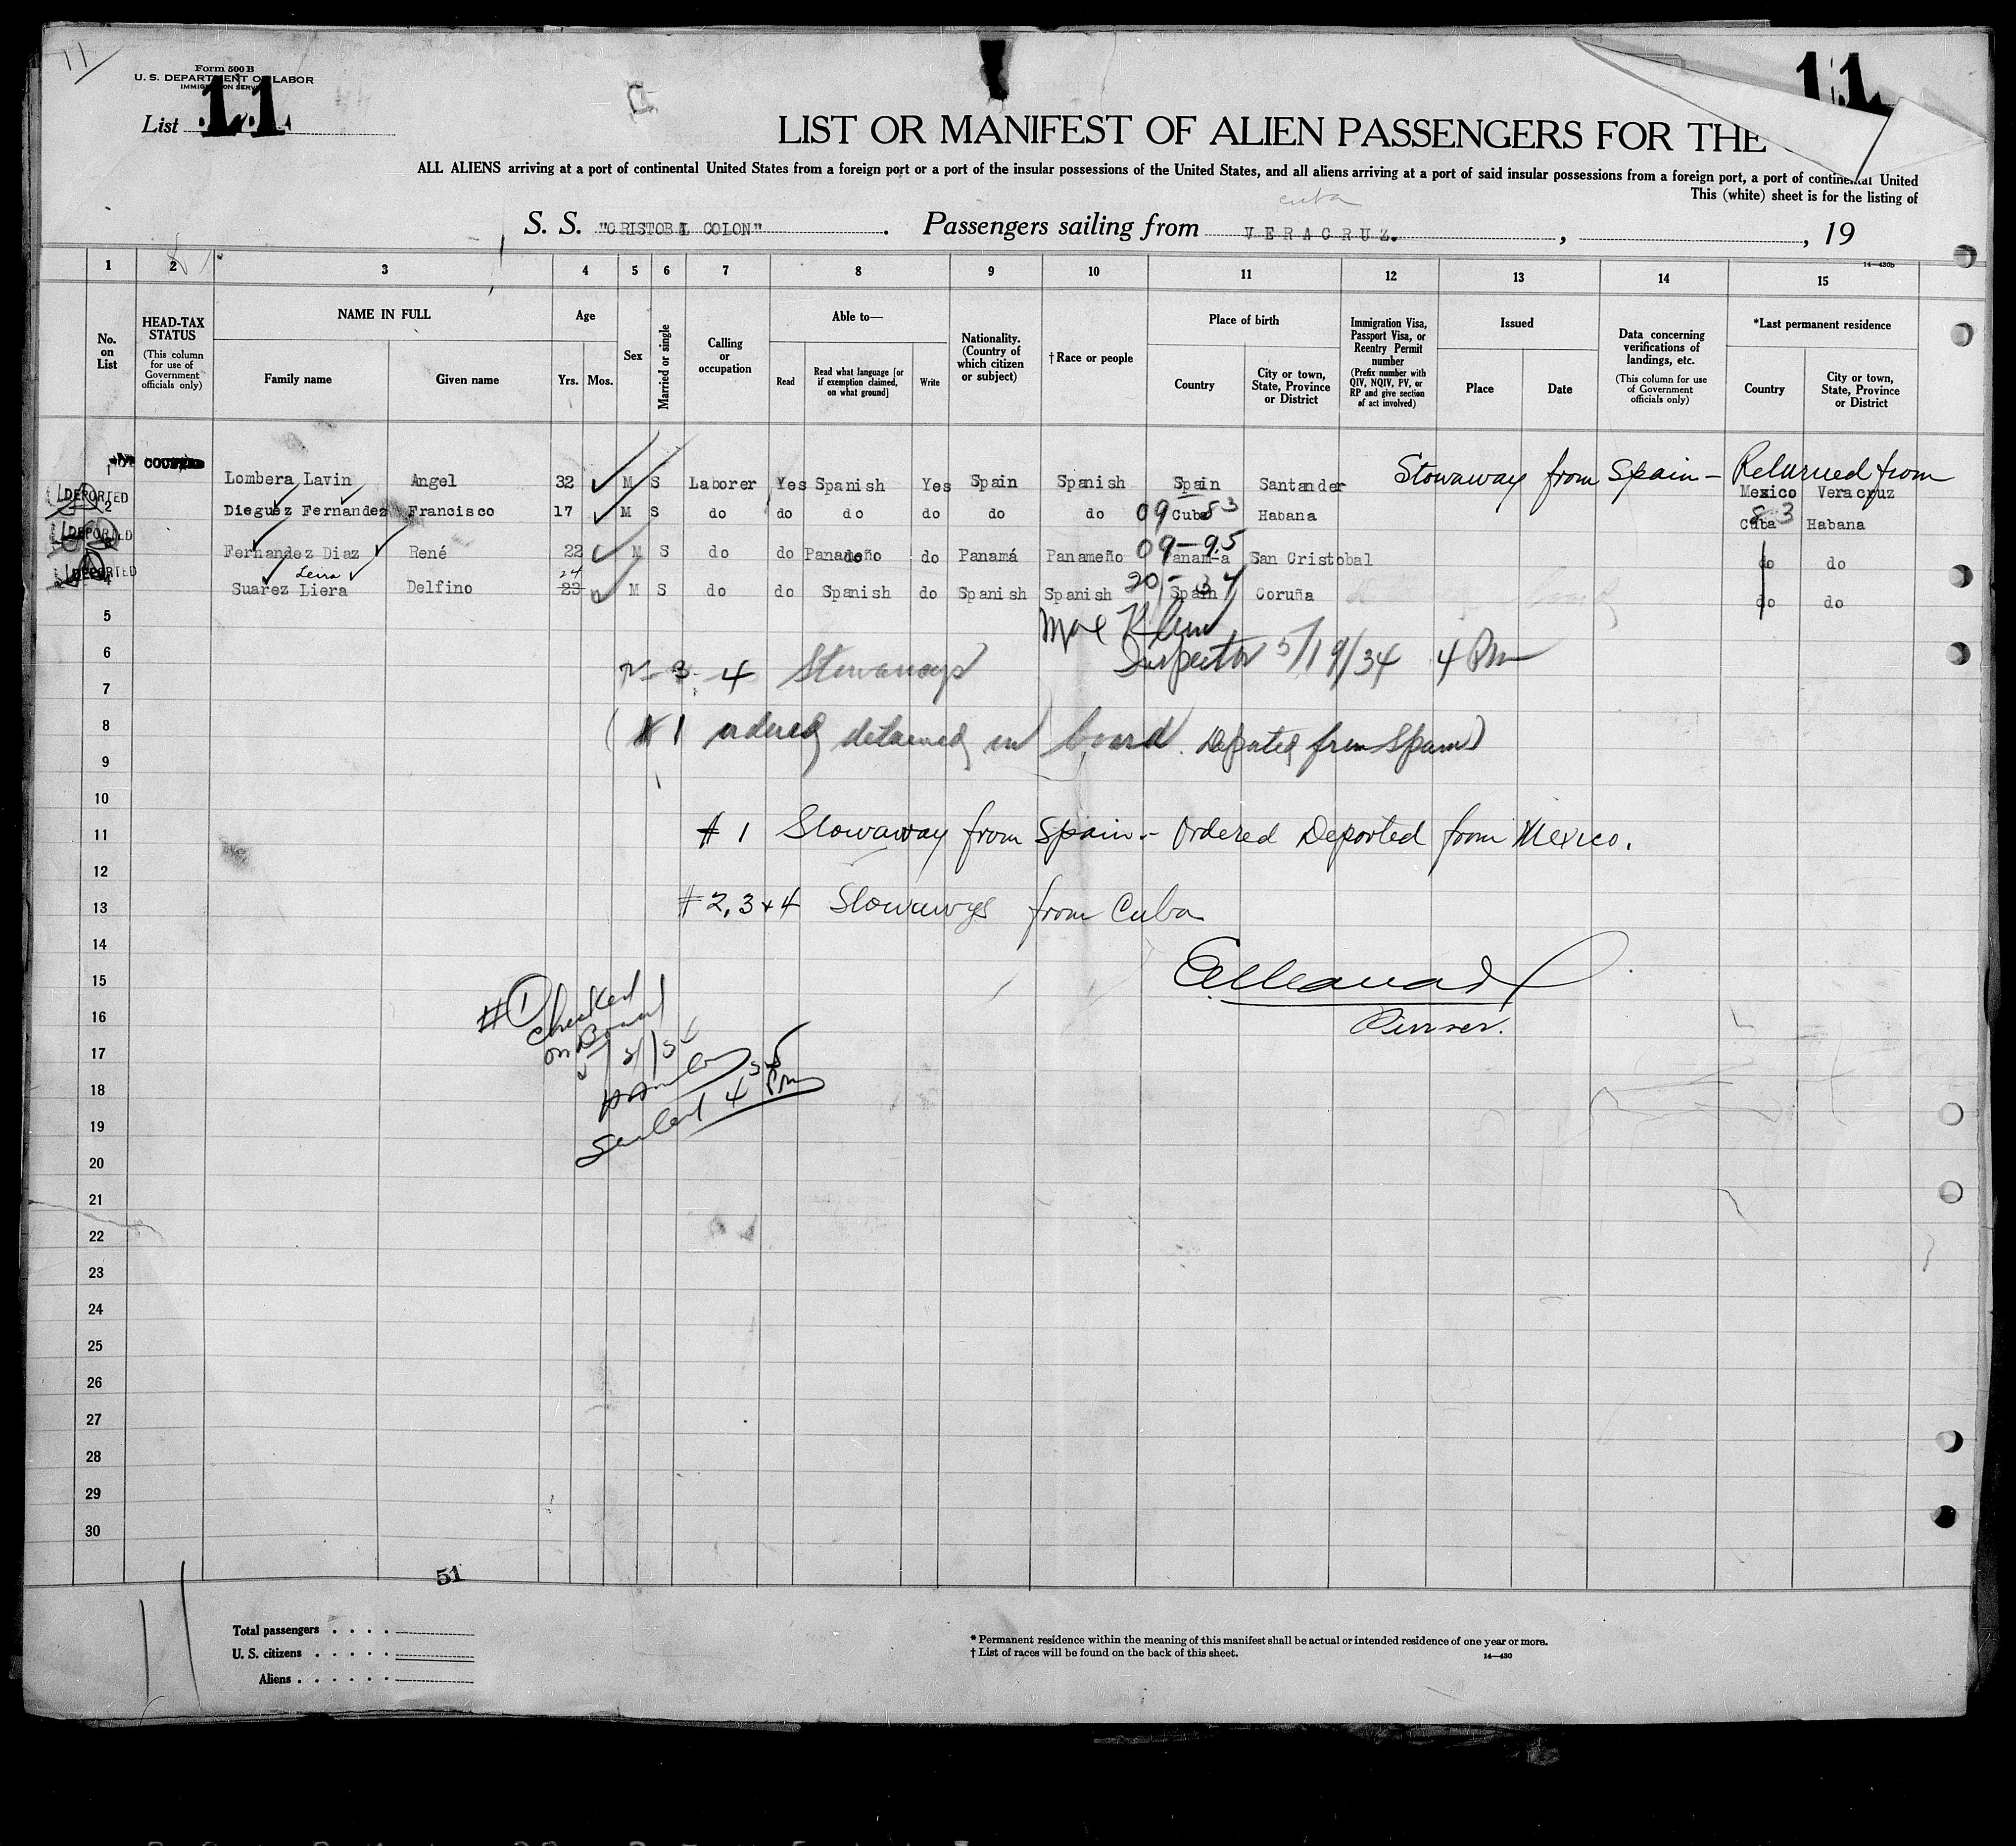 11
Form 500 B
U. S. DEPARTMENT OF LABOR
IMMIGRATION SERVICE
List 11
11
LIST OR MANIFEST OF ALIEN PASSENGERS FOR THE
ALL ALIENS arriving at a port of continental United States from a foreign port or a port of the insular possessions of the United States, and all aliens arriving at a port of said insular possessions from a foreign port, a port of continental United
This (white) sheet is for the listing of
cuba
S. S. "CRISTOBAL COLON". Passengers sailing from VERACRUZ. , , 19
14—430b
1 2 3 4 5 6 7 8 9 10 11 12 13 14 15
No. on List
HEAD-TAX STATUS
(This column for use of Government officials only)
NAME IN FULL
Family name Given name
Age
Yrs. Mos.
Sex
Married or single
Calling or occupation
Able to—
Read
Read what language [or if exemption claimed, on what ground]
Write
Nationality. (Country of which citizen or subject)
†Race or people
Place of birth
Country
City or town, State, Province or District
Immigration Visa, Passport Visa, or Reentry Permit number
(Prefix number with QIV, NQIV, PV, or RP and give section of act involved)
Issued
Place Date
Data concerning verifications of landings, etc.
(This column for use of Government officials only)
*Last permanent residence
Country
City or town, State, Province or District
1 Lombera Lavin Angel 32 M S Laborer Yes Spanish Yes Spain Spanish Spain Santander Stowaway from Spain – Returned from Mexico Veracruz
DEPORTED
2 Dieguez Fernandez Francisco 17 M S do do do do do do 09 Cuba 83 Habana Cuba 83 Habana
DEPORTED
3 Fernandez Diaz René 22 M S do do Panameño do Panamá Panameño 09-95 Panama San Cristobal do do
DEPORTED
Leira 24
4 Suarez Liera Delfino 23 M S do do Spanish do Spanish Spanish 20-34 Spain Coruña do do
5
Inspector 5/19/34 4 Pm
6
2-3-4 Stowaways
7
8
(#1 ordered detained on board. Deported from Spain)
9
10
11
#1 Stowaway from Spain – Ordered Deported from Mexico.
12
13
#2, 3 + 4 Stowaways from Cuba
14
15
16
Purser.
#1 checked
on Board
17
18
19
20
21
22
23
24
25
26
27
28
29
30
51
11
Total passengers
U. S. citizens
Aliens
* Permanent residence within the meaning of this manifest shall be actual or intended residence of one year or more.
† List of races will be found on the back of this sheet.
14—430